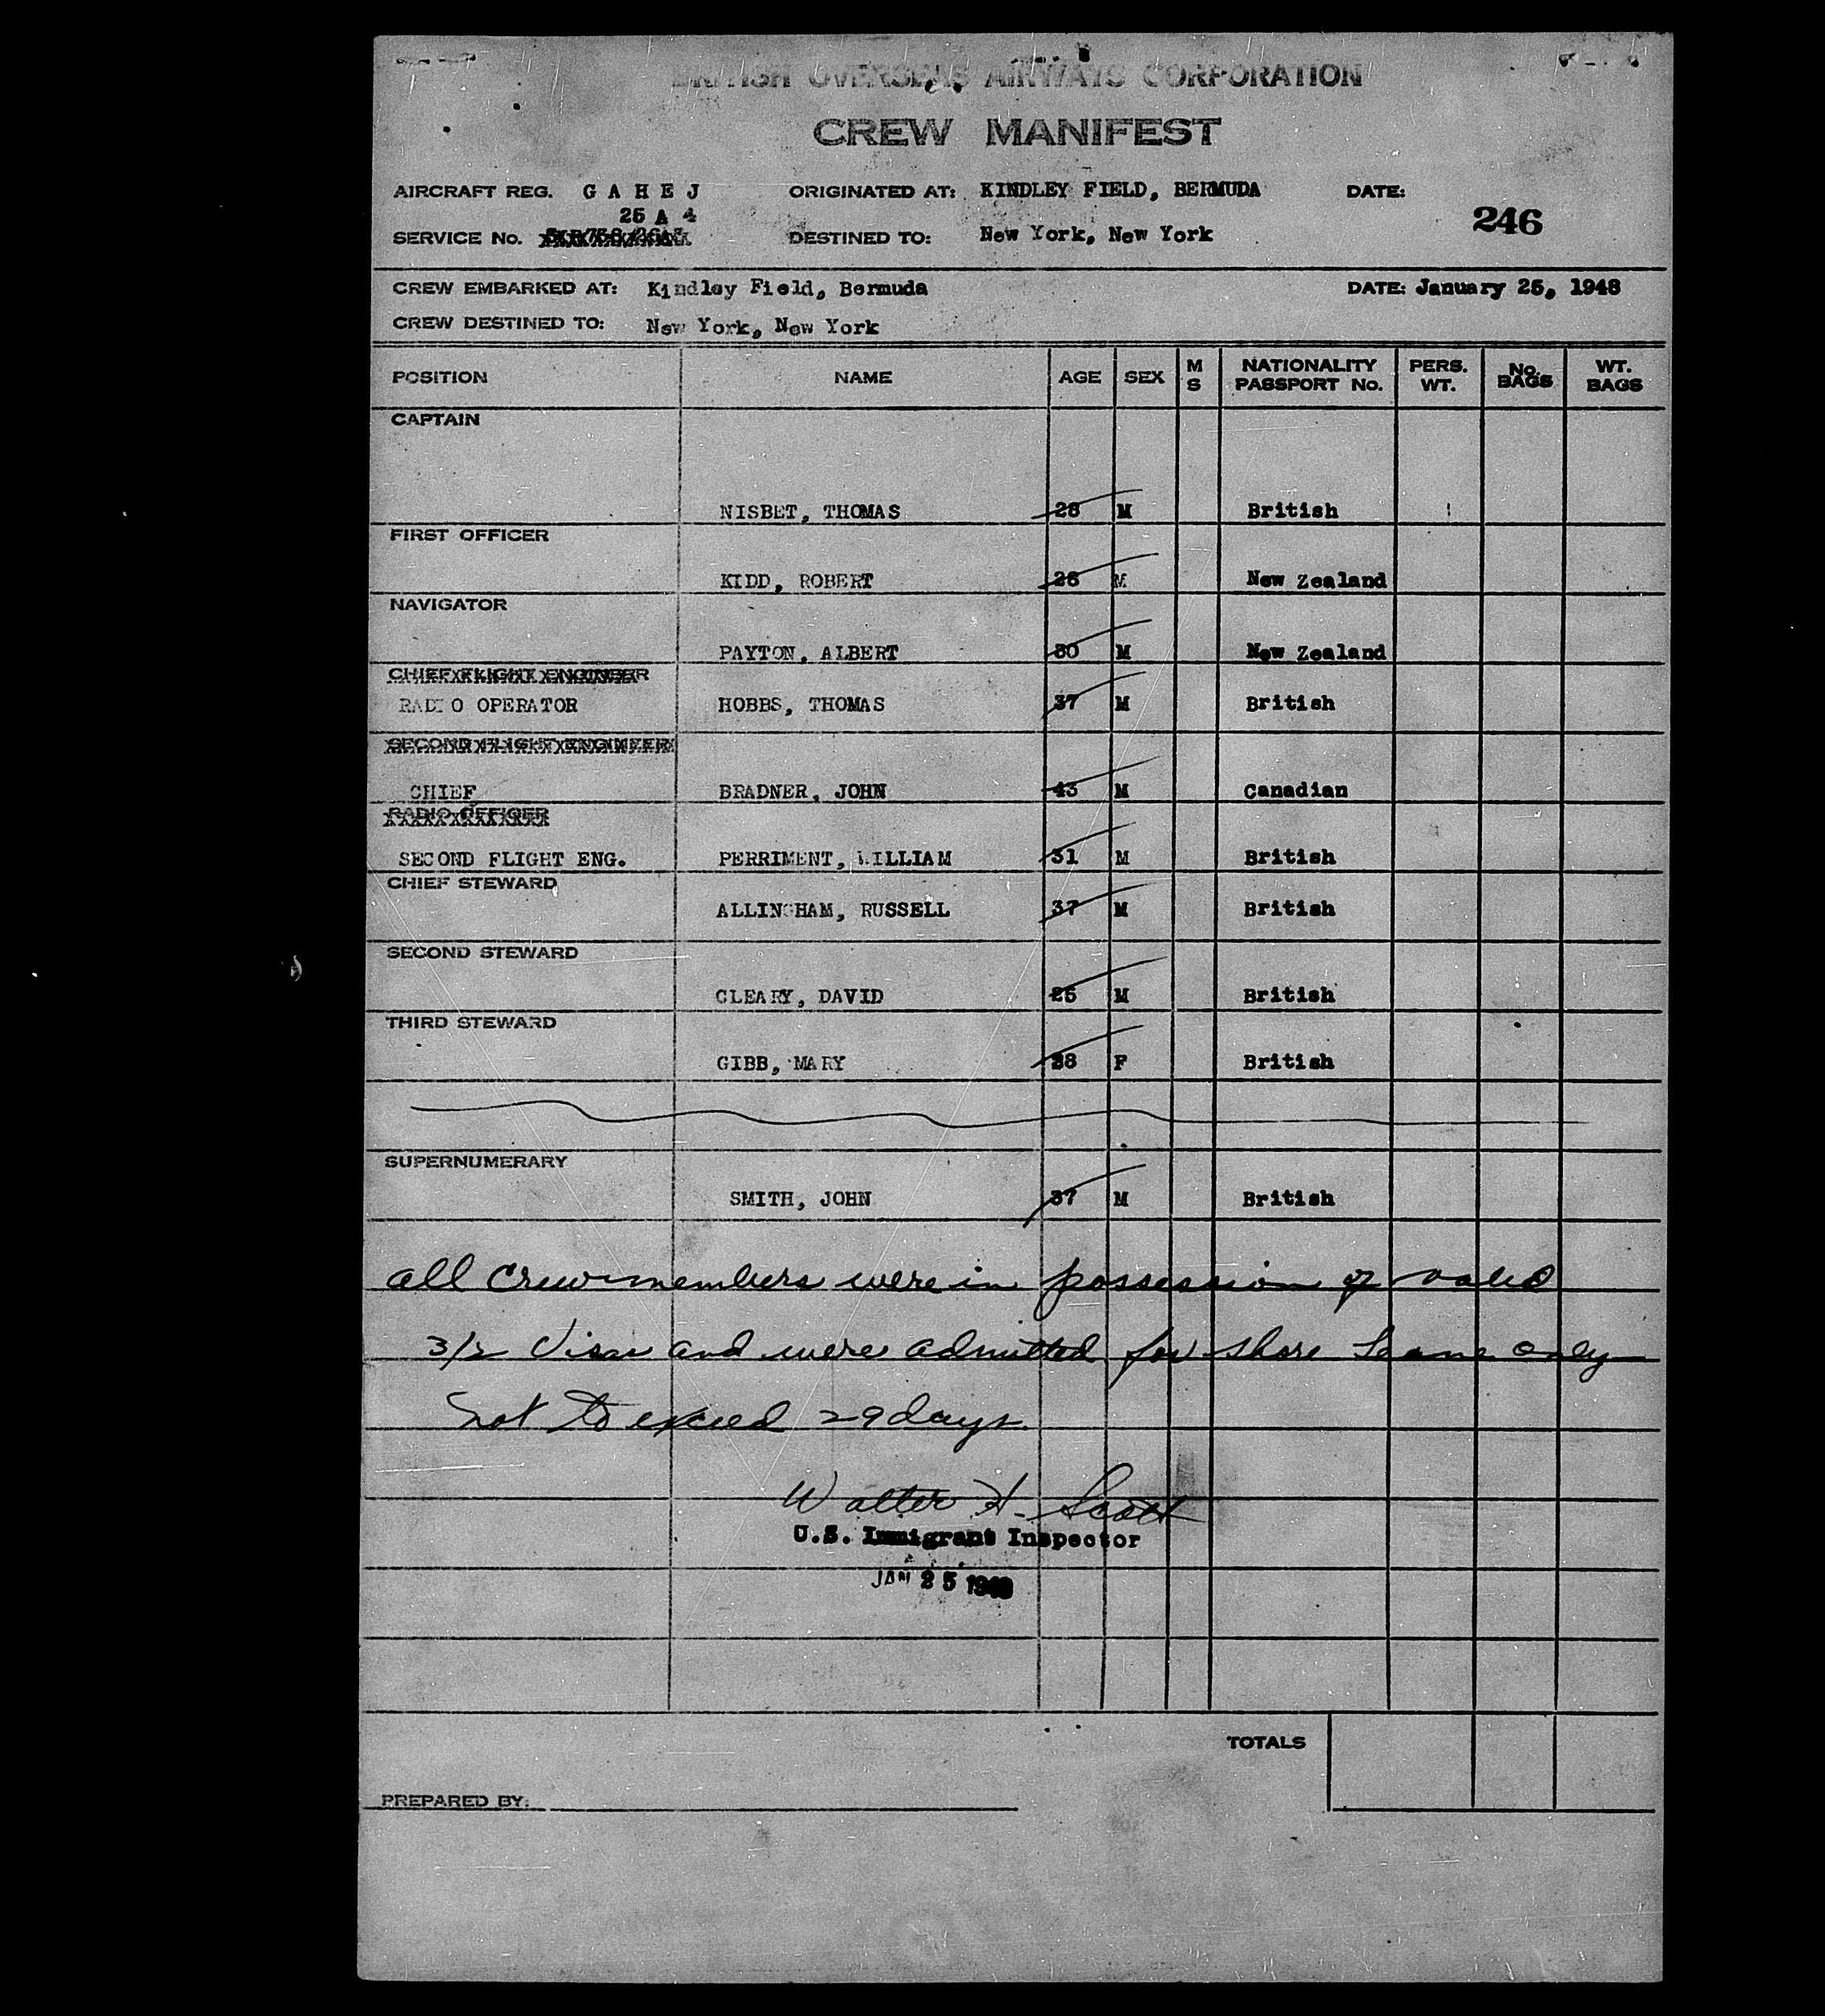 BRITISH OVERSEAS AIRWAYS CORPORATION
CREW MANIFEST
AIRCRAFT REG. G A H E J ORIGINATED AT: KINDLEY FIELD, BERMUDA DATE:
25 A 4
246
SERVICE No. DESTINED TO: New York, New York
CREW EMBARKED AT: Kindley Field, Bermuda DATE: January 25, 1948
CREW DESTINED TO: New York, New York
POSITION NAME AGE SEX M S NATIONALITY PASSPORT No. PERS. WT. No. BAGS WT. BAGS
CAPTAIN
NISBET, THOMAS 28 M British
FIRST OFFICER
KIDD, ROBERT 26 M New Zealand
NAVIGATOR
PAYTON, ALBERT 30 M New Zealand
CHIEF FLIGHT ENGINEER
RADIO OPERATOR HOBBS, THOMAS 37 M British
SECOND FLIGHT ENGINEER
CHIEF BRADNER, JOHN 43 M Canadian
RADIO OFFICER
SECOND FLIGHT ENG. PERRIMENT, WILLIAM 31 M British
CHIEF STEWARD
ALLINGHAM, RUSSELL 37 M British
SECOND STEWARD
CLEARY, DAVID 25 M British
THIRD STEWARD
GIBB, MARY 28 F British
SUPERNUMERARY
SMITH, JOHN 37 M British
all crewmembers were in possession of valid
3/2 visas and were admitted for shore leave only
not to exceed 29 days
Walter H. Scott
U.S. Immigrant Inspector
JAN 25 1948
TOTALS
PREPARED BY: